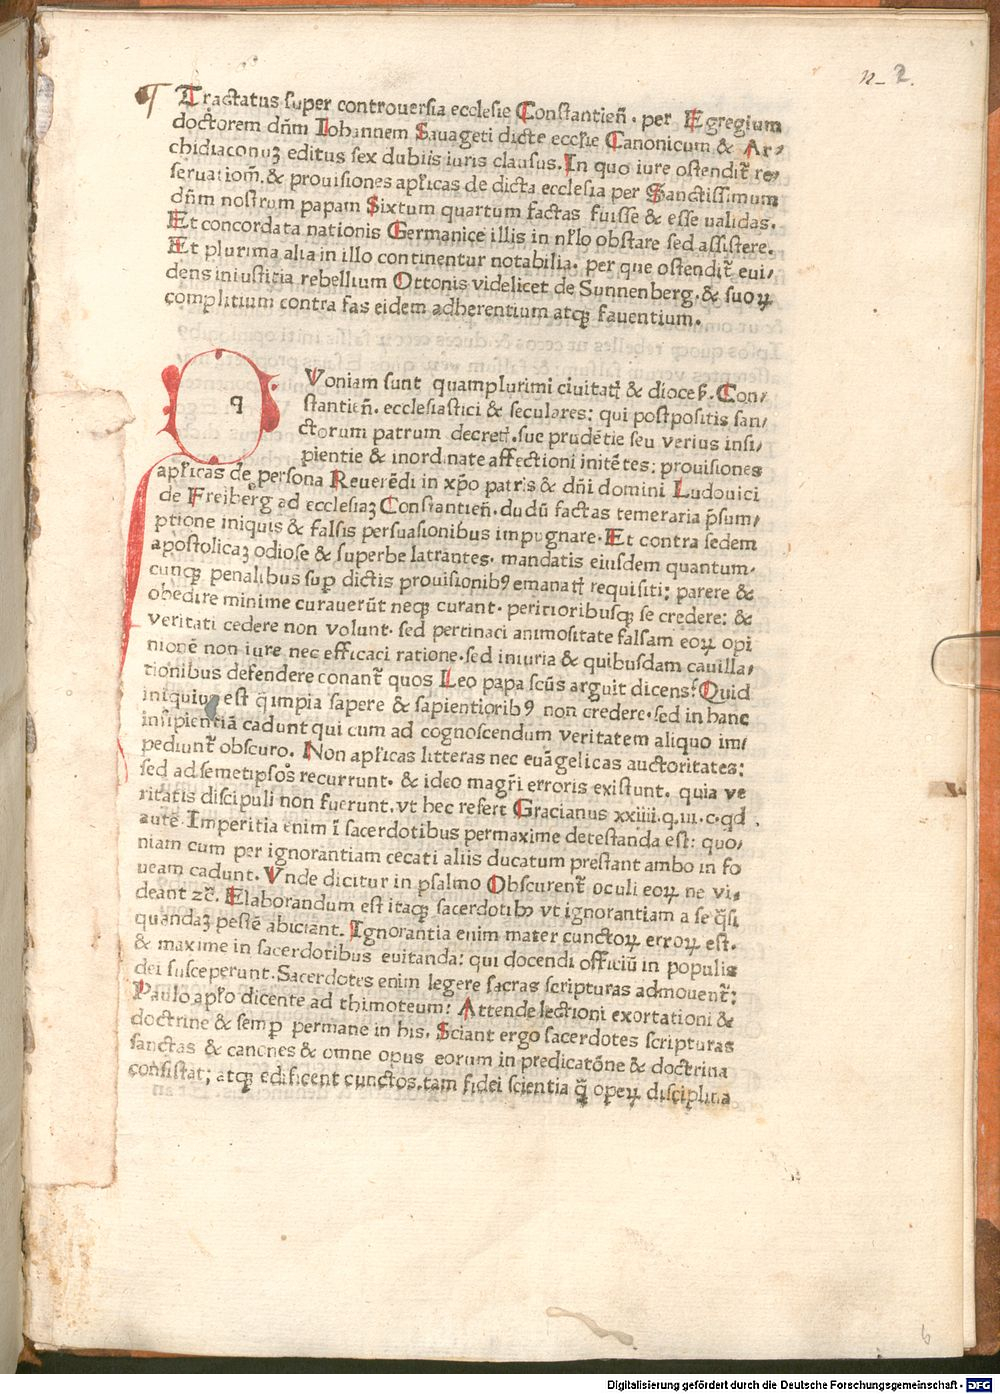 n_ 2.
¶ Tractatus super controuersia ecclesie Constantien̄ . per Egregium
doctorem dn̄m Iohannem Sauageti dicte eccl'ie Canonicum & Ar⸗
chidiaconuꝫ editus sex dubiis iuris clausus. In quo iure ostendit᷑ re⸗
seruatiom̄. & prouisiones apl'icas de dicta ecclesia per Sanctissimum
dn̄m nostrum papam Sixtum quartum factas fuisse & esse ualidas.
Et concordata nationis Germanice illis in nl'lo obstare sed assistere.
Et plurima alia in illo continentur notabilia. per que ostendit᷑ eui⸗
dens iniustitia rebellium Ottonis videlicet de Sunnenberg. & suoꝝ
complitium contra fas eidem adherentium atqꝫ fauentium.
q Voniam sunt quamplurimi ciuitatꝭ & dioceß. Con⸗
stantien̄. ecclesiastici & seculares: qui postpositis san⸗
ctorum patrum decretꝭ. sue prudētie seu verius insi⸗
pientie & inordinate affectioni initētes: prouisiones
apl'icas de persona Reuerēdi in xp̄o patris & dn̄i domini Ludouici
de Freiberg ad ecclesiaꝫ Constantien̄. dudū factas temeraria p̄sum⸗
ptione iniquis & falsis persuasionibus impugnare. Et contra sedem
apostolicaꝫ odiose & superbe latrantes. mandatis eiusdem quantum⸗
cunqꝫ penalibus suꝑ dictis prouisionibꝰ emanatꝭ requisiti: parere &
obedire minime curauerūt neqꝫ curant. peritioribusqꝫ se credere: &
veritati cedere non volunt. sed pertinaci animositate falsam eoꝝ opi
nionē non iure nec efficaci ratione. sed iniuria & quibusdam cauilla⸗
tionibus defendere conant᷑ quos Leo papa scūs arguit dicens: Quid
iniquius est q̄ impia sapere & sapientioribꝰ non credere. sed in hanc
insipientiā cadunt qui cum ad cognoscendum veritatem aliquo im⸗
pediunt᷑ obscuro. Non apl'icas litteras nec euāgelicas auctoritates:
sed ad semetipsos recurrunt. & ideo magr̄i erroris existunt. quia ve
ritatis discipuli non fuerunt. vt hec refert Gracianus xxiiii. q. iii. c. qd
aute. Imperitia enim ī sacerdotibus permaxime detestanda est: quo⸗
niam cum per ignorantiam cecati aliis ducatum prestant ambo in fo
ueam cadunt. Vnde dicitur in psalmo Obscurent᷑ oculi eoꝝ ne vi⸗
deant ⁊c̄. Elaborandum est itaqꝫ sacerdotibꝫ vt ignorantiam a se q̄si
quandaꝫ pestē abiciant. Ignorantia enim mater cunctoꝝ erroꝝ est.
& maxime in sacerdotibus euitanda: qui docendi officiū in populis
dei susceperunt. Sacerdotes enim legere sacras scripturas admouent᷑:
Paulo apl'o dicente ad thimoteum: Attende lectioni exortationi &
doctrine & semꝑ permane in his. Sciant ergo sacerdotes scripturas
sanctas & canones & omne opus eorum in predicatōne & doctrina
consistat; atqꝫ edificent cunctos. tam fidei scientia q̄ꝫ operꝝ disciplina
b
Digitalisierung gefördert durch die Deutsche Forschungsgemeinschaft - DFG